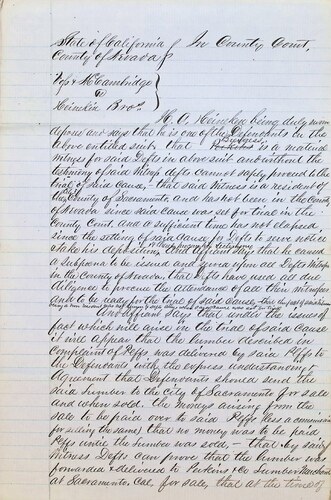 State of California } In County Court,
County of Nevada }
Fogs & McCambridge }
vs
Heineken Bros. }
H. C. Heineken being duly sworn
deposes and says that he is one of the Defendants in the
above entitled suit that is a material
witness for said Defts in above suit and without the
testimony of said witness defts cannot safely proceed to the
trial of said Cause, — that said witness is a resident of
the County of Sacramento, and has not been in the County
of Nevada since said cause was set for trial in the
County Court. And a sufficient time has not elapsed
since the setting of said cause for Defts to serve notice
& take his deposition, Affiant says that he caused
a Subpoena to be issued and served upon all Defts witnesses
in the County of Nevada, that Defts have used all due
diligence to procure the attendance of all their witnesses
and to be ready for the trial of said Cause
Affiant says that under the issues of
fact which will arise in the trial of said Cause
it will appear that the lumber described in
Complaint of Plffs, was delivered by said Plffs to
the Defendants with the express understanding &
Agreement that Defendants should send the
said Lumber to the City of Sacramento for sale
and when sold, the moneys arising from the
sale to be paid over to said Plffs (less a commission
for selling the same) that no money was to be paid
Plffs until the Lumber was sold, — that by said
witness Defts can prove that the lumber was
forwarded & delivered to Perkins & Co Lumber Merchants
at Sacramento, Cal, for sale, that at the time of